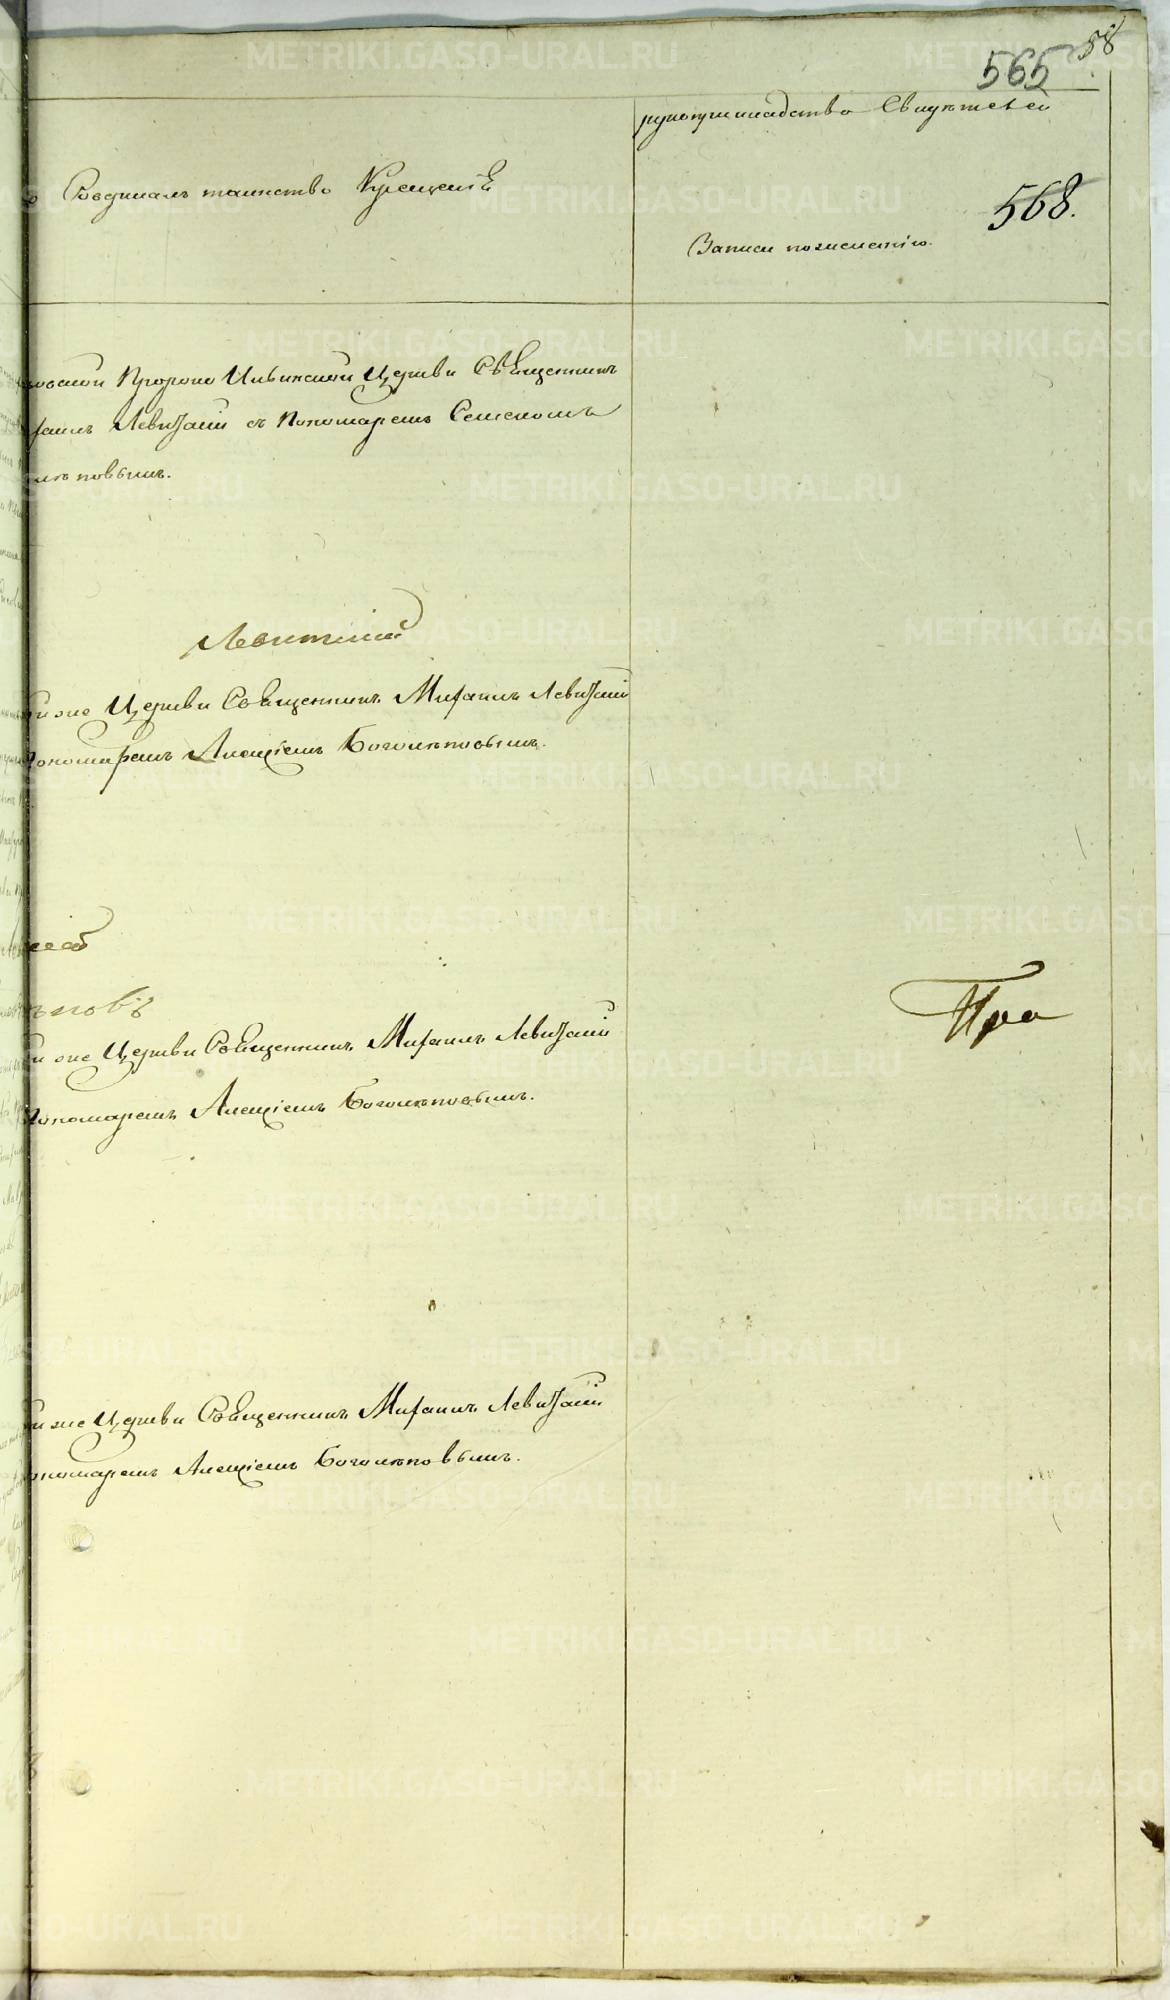 58
565
рукоприкладство Свидѣтелей
Совершалъ таинство Крещенія
568.
Записи по желанію.
Пророко Ильинской Церкви Священникъ
Левитскій съ Пономаремъ
Левитскій
же Церкви Священникъ Михаилъ Левитскій
Пономаремъ Алексіемъ Боголѣповымъ.
же Церкви Священникъ Михаилъ Левитскій
Пономаремъ Алексіемъ Боголѣповымъ.
Пра
же Церкви Священникъ Михаилъ Левитскій
Пономаремъ Алексіемъ Боголѣповымъ.
METRIKI.GASO-URAL.RU